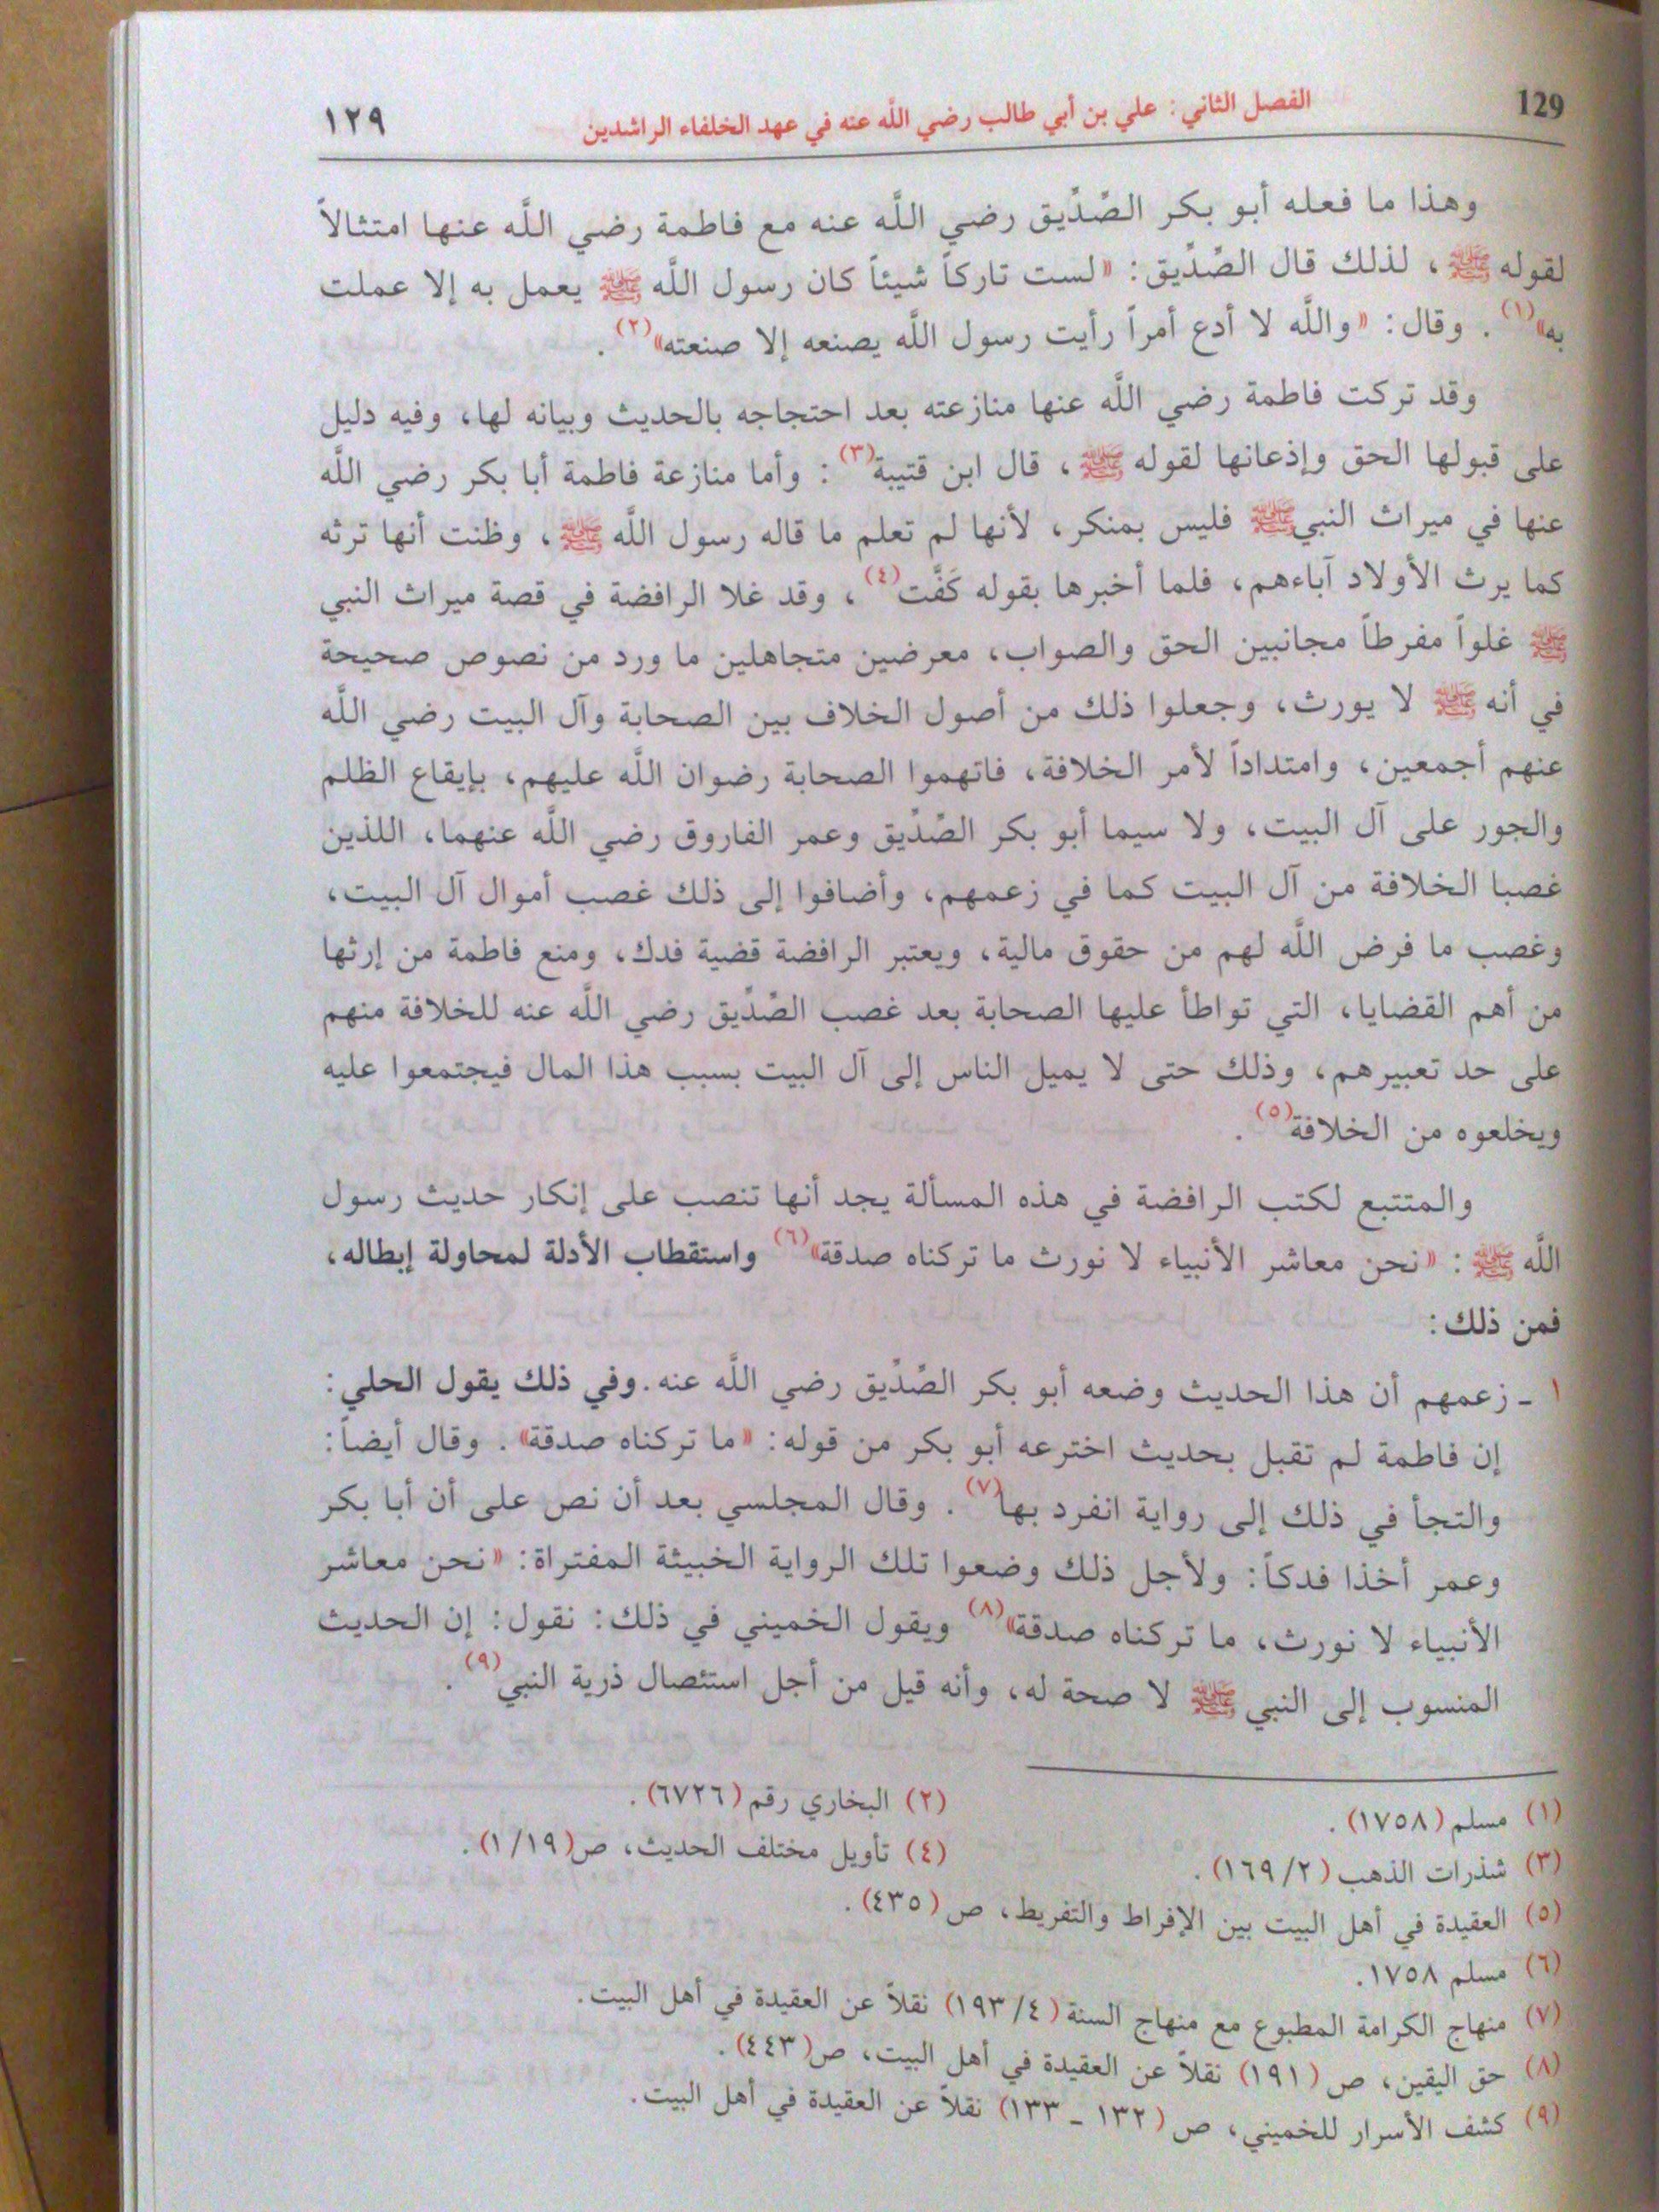 129 الفصل الثاني: علي بن أبي طالب رضي اللَّه عنه في عهد الخلفاء الراشدين ١٢٩
وهذا ما فعله أبو بكر الصِّدِّيق رضي اللَّه عنه مع فاطمة رضي اللَّه عنها امتثالاً
لقوله ﷺ، لذلك قال الصِّدِّيق: «لست تاركاً شيئاً كان رسول اللَّه ﷺ يعمل به إلا عملت
به»(١). وقال: «واللَّه لا أدع أمراً رأيت رسول اللَّه يصنعه إلا صنعته»(٢).
وقد تركت فاطمة رضي اللَّه عنها منازعته بعد احتجاجه بالحديث وبيانه لها، وفيه دليل
على قبولها الحق وإذعانها لقوله ﷺ، قال ابن قتيبة(٣): وأما منازعة فاطمة أبا بكر رضي اللَّه
عنها في ميراث النبي ﷺ فليس بمنكر، لأنها لم تعلم ما قاله رسول اللَّه ﷺ، وظنت أنها ترثه
كما يرث الأولاد آباءهم، فلما أخبرها بقوله كَفَّت(٤)، وقد غلا الرافضة في قصة ميراث النبي
ﷺ غلواً مفرطاً مجانبين الحق والصواب، معرضين متجاهلين ما ورد من نصوص صحيحة
في أنه ﷺ لا يورث، وجعلوا ذلك من أصول الخلاف بين الصحابة وآل البيت رضي اللَّه
عنهم أجمعين، وامتداداً لأمر الخلافة، فاتهموا الصحابة رضوان اللَّه عليهم، بإيقاع الظلم
والجور على آل البيت، ولا سيما أبو بكر الصِّدِّيق وعمر الفاروق رضي اللَّه عنهما، اللذين
غصبا الخلافة من آل البيت كما في زعمهم، وأضافوا إلى ذلك غصب أموال آل البيت،
وغصب ما فرض اللَّه لهم من حقوق مالية، ويعتبر الرافضة قضية فدك، ومنع فاطمة من إرثها
من أهم القضايا، التي تواطأ عليها الصحابة بعد غصب الصِّدِّيق رضي اللَّه عنه للخلافة منهم
على حد تعبيرهم، وذلك حتى لا يميل الناس إلى آل البيت بسبب هذا المال فيجتمعوا عليه
ويخلعوه من الخلافة(٥).
والمتتبع لكتب الرافضة في هذه المسألة يجد أنها تنصب على إنكار حديث رسول
اللَّه ﷺ: «نحن معاشر الأنبياء لا نورث ما تركناه صدقة»(٦) واستقطاب الأدلة لمحاولة إبطاله،
فمن ذلك:
١ ـ زعمهم أن هذا الحديث وضعه أبو بكر الصِّدِّيق رضي اللَّه عنه. وفي ذلك يقول الحلي:
إن فاطمة لم تقبل بحديث اخترعه أبو بكر من قوله: «ما تركناه صدقة». وقال أيضاً:
والتجأ في ذلك إلى رواية انفرد بها(٧). وقال المجلسي بعد أن نص على أن أبا بكر
وعمر أخذا فدكاً: ولأجل ذلك وضعوا تلك الرواية الخبيثة المفتراة: «نحن معاشر
الأنبياء لا نورث، ما تركناه صدقة»(٨) ويقول الخميني في ذلك: نقول: إن الحديث
المنسوب إلى النبي ﷺ لا صحة له، وأنه قيل من أجل استئصال ذرية النبي(٩).
(١) مسلم (١٧٥٨). (٢) البخاري رقم (٦٧٢٦).
(٣) شذرات الذهب (١٦٩/٢). (٤) تأويل مختلف الحديث، ص(١/١٩).
(٥) العقيدة في أهل البيت بين الإفراط والتفريط، ص (٤٣٥).
(٦) مسلم ١٧٥٨.
(٧) منهاج الكرامة المطبوع مع منهاج السنة (١٩٣/٤) نقلاً عن العقيدة في أهل البيت.
(٨) حق اليقين، ص (١٩١) نقلاً عن العقيدة في أهل البيت، ص(٤٤٣).
(٩) كشف الأسرار للخميني، ص (١٣٢ ـ ١٣٣) نقلاً عن العقيدة في أهل البيت.